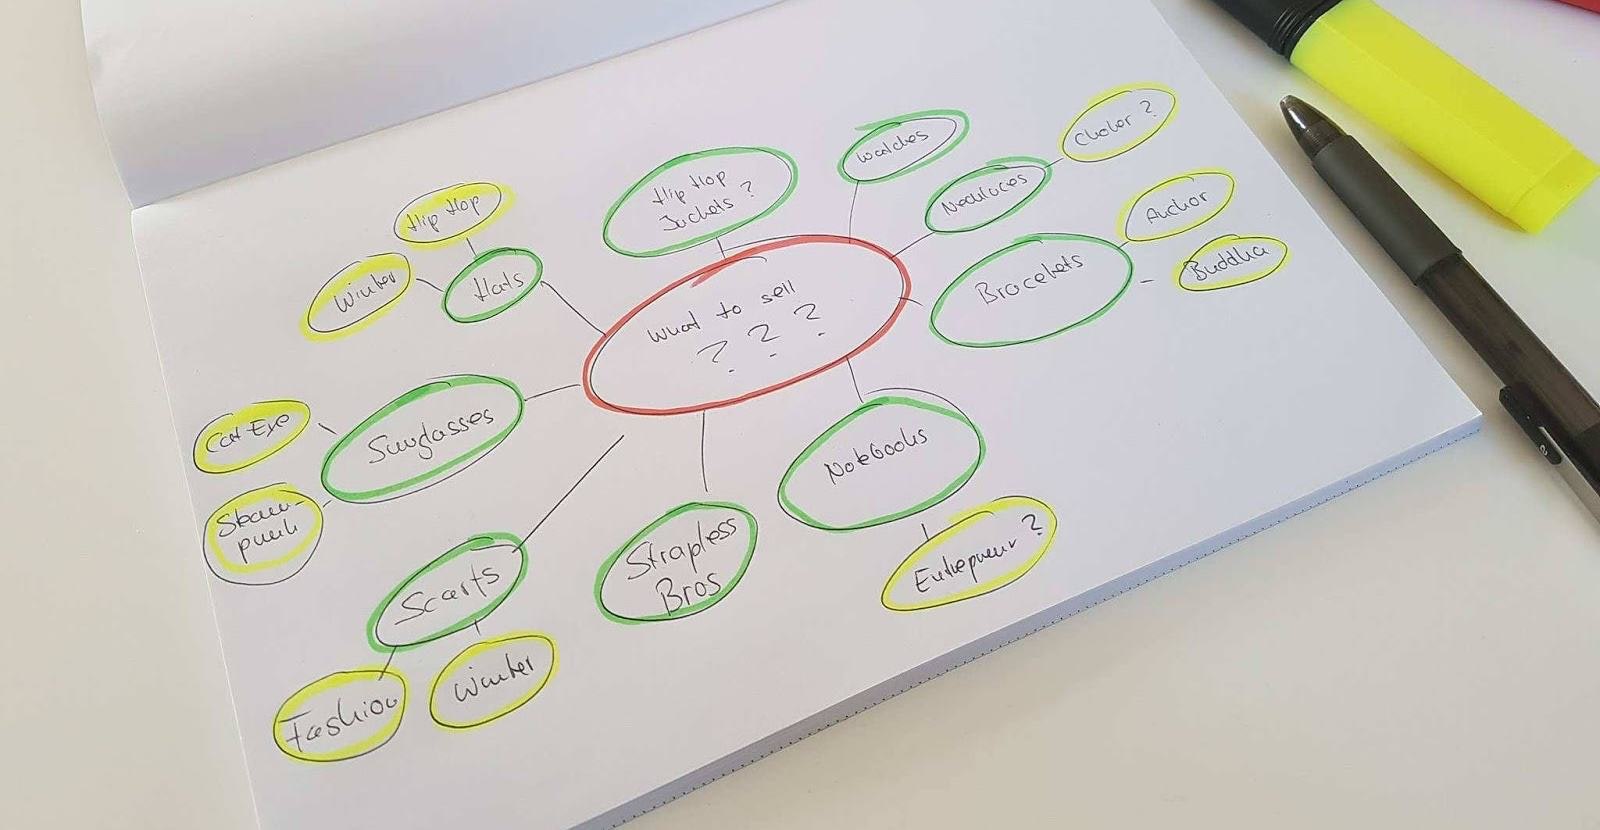 What to sell
? ? ?
Hip Hop
Jackets ?
Watches
Necklaces
Choker ?
Bracelets
Anchor
Buddha
Notebooks
Entrepneur ?
Strapless
Bros
Scarfs
Winter
Fashion
Sunglasses
Cat Eye
Steam-
punk
Hats
Winter
Hip Hop